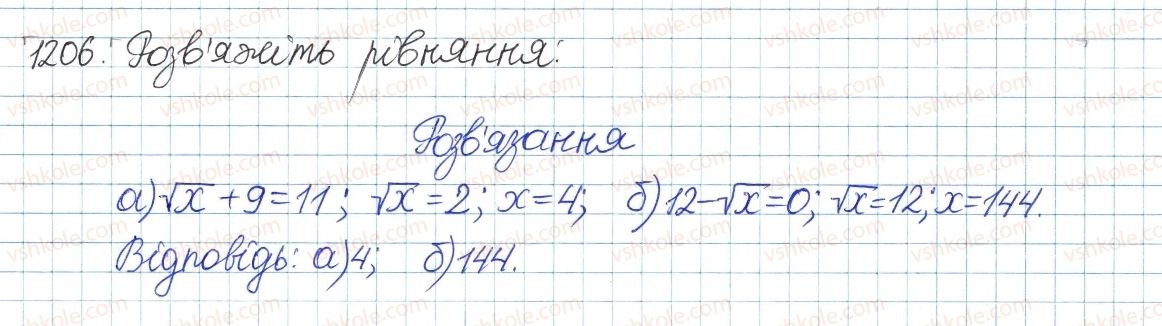 1206. Розв'яжіть рівняння:
Розв'язання
а) √x + 9 = 11; √x = 2; x = 4; б) 12 - √x = 0; √x = 12; x = 144.
Відповідь: а) 4; б) 144.